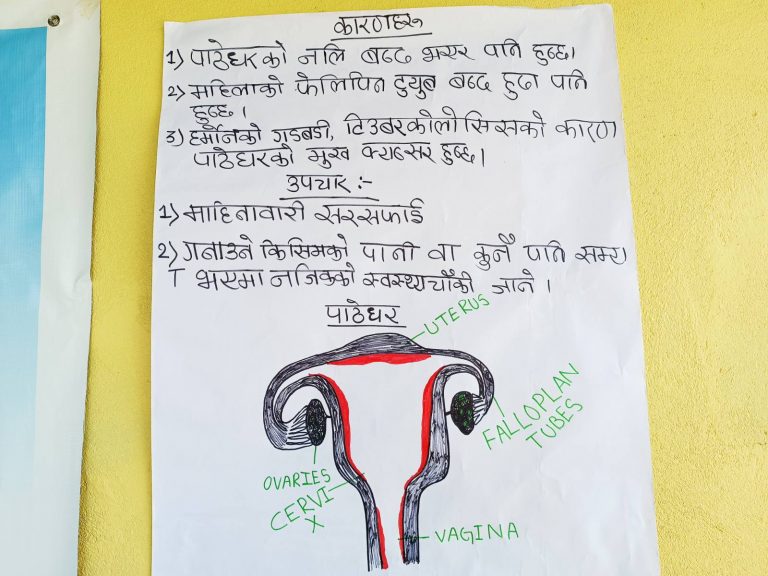 कारणहरू
1) पाठेघरको नलि बन्द भएर पनि हुन्छ।
2) महिलाको फेलिपिन टुयुब बन्द हुदा पनि
हुन्छ।
3) हर्मोनको गडबडी, टिउबरकोलोसिसको कारण
पाठेघरको मुख क्यान्सर हुन्छ।
उपचार :-
1) माहिनावारी सरसफाई
2) गनाउने किसिमको पानी वा कुनै पनि समस्य
ा भएमा नजिकको स्वस्थ्यचौकी जाने।
पाठेघर
UTERUS
FALLOPLAN
TUBES
OVARIES
CERVI
X
VAGINA